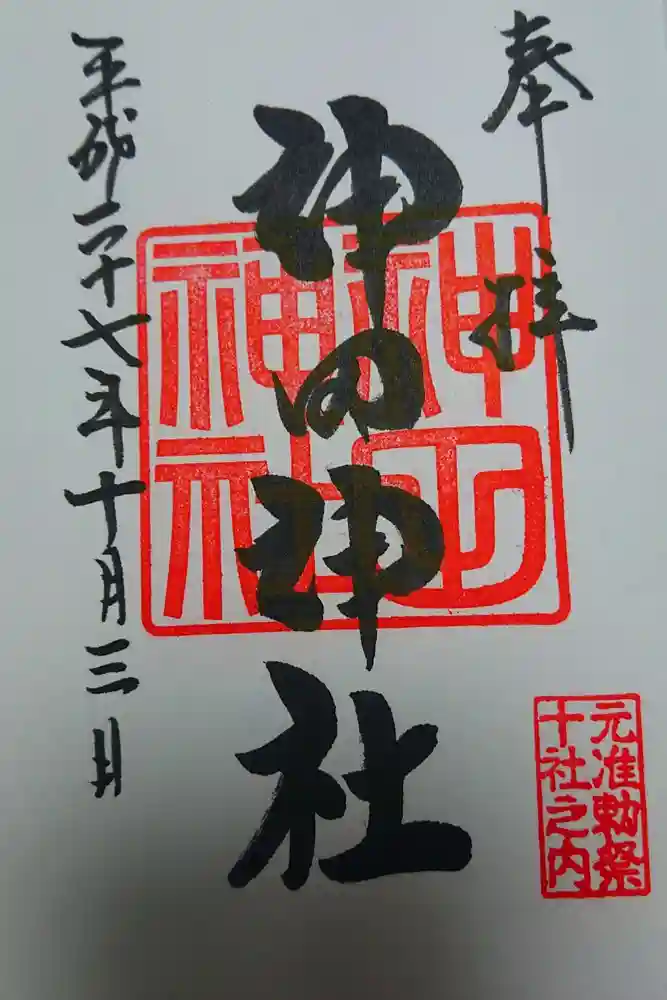 奉拝
神田神社
平成二十七年十月三日
神田
神社
元准勅祭
十社之内